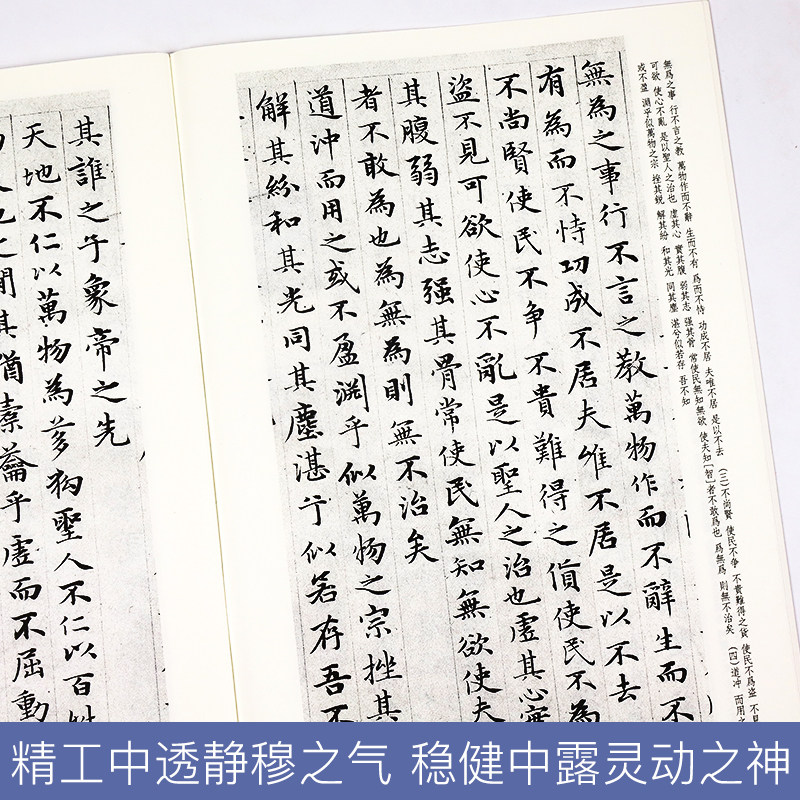 無爲之事 行不言之教 萬物作而不辭 生而不有 爲而不恃 功成不居 夫唯不居 是以不去 (三)不尚賢 使民不争 不貴難得之貨 使民不爲盗 不見
可欲 使心不亂 是以聖人之治也 虚其心 實其腹 弱其志 强其骨 常使民無知無欲 使夫知[智]者不敢爲也 爲無爲 則無不治矣 (四)道冲 而用之
或不盈 淵乎似萬物之宗 挫其銳 解其紛 和其光 同其塵 湛兮似若存 吾不知
無為之事行不言之教萬物作而不辭生而不
有為而不恃功成不居夫唯不居是以不去
不尚賢使民不争不貴難得之貨使民不為
盗不見可欲使心不亂是以聖人之治也虚其心實
其腹弱其志强其骨常使民無知無欲使夫
者不敢為也為無為則無不治矣
道冲而用之或不盈淵乎似萬物之宗挫其
解其紛和其光同其塵湛兮似若存吾不
其誰之子象帝之先
天地不仁以萬物為芻狗聖人不仁以百姓
之間其猶橐籥乎虚而不屈動
精工中透静穆之气 稳健中露灵动之神